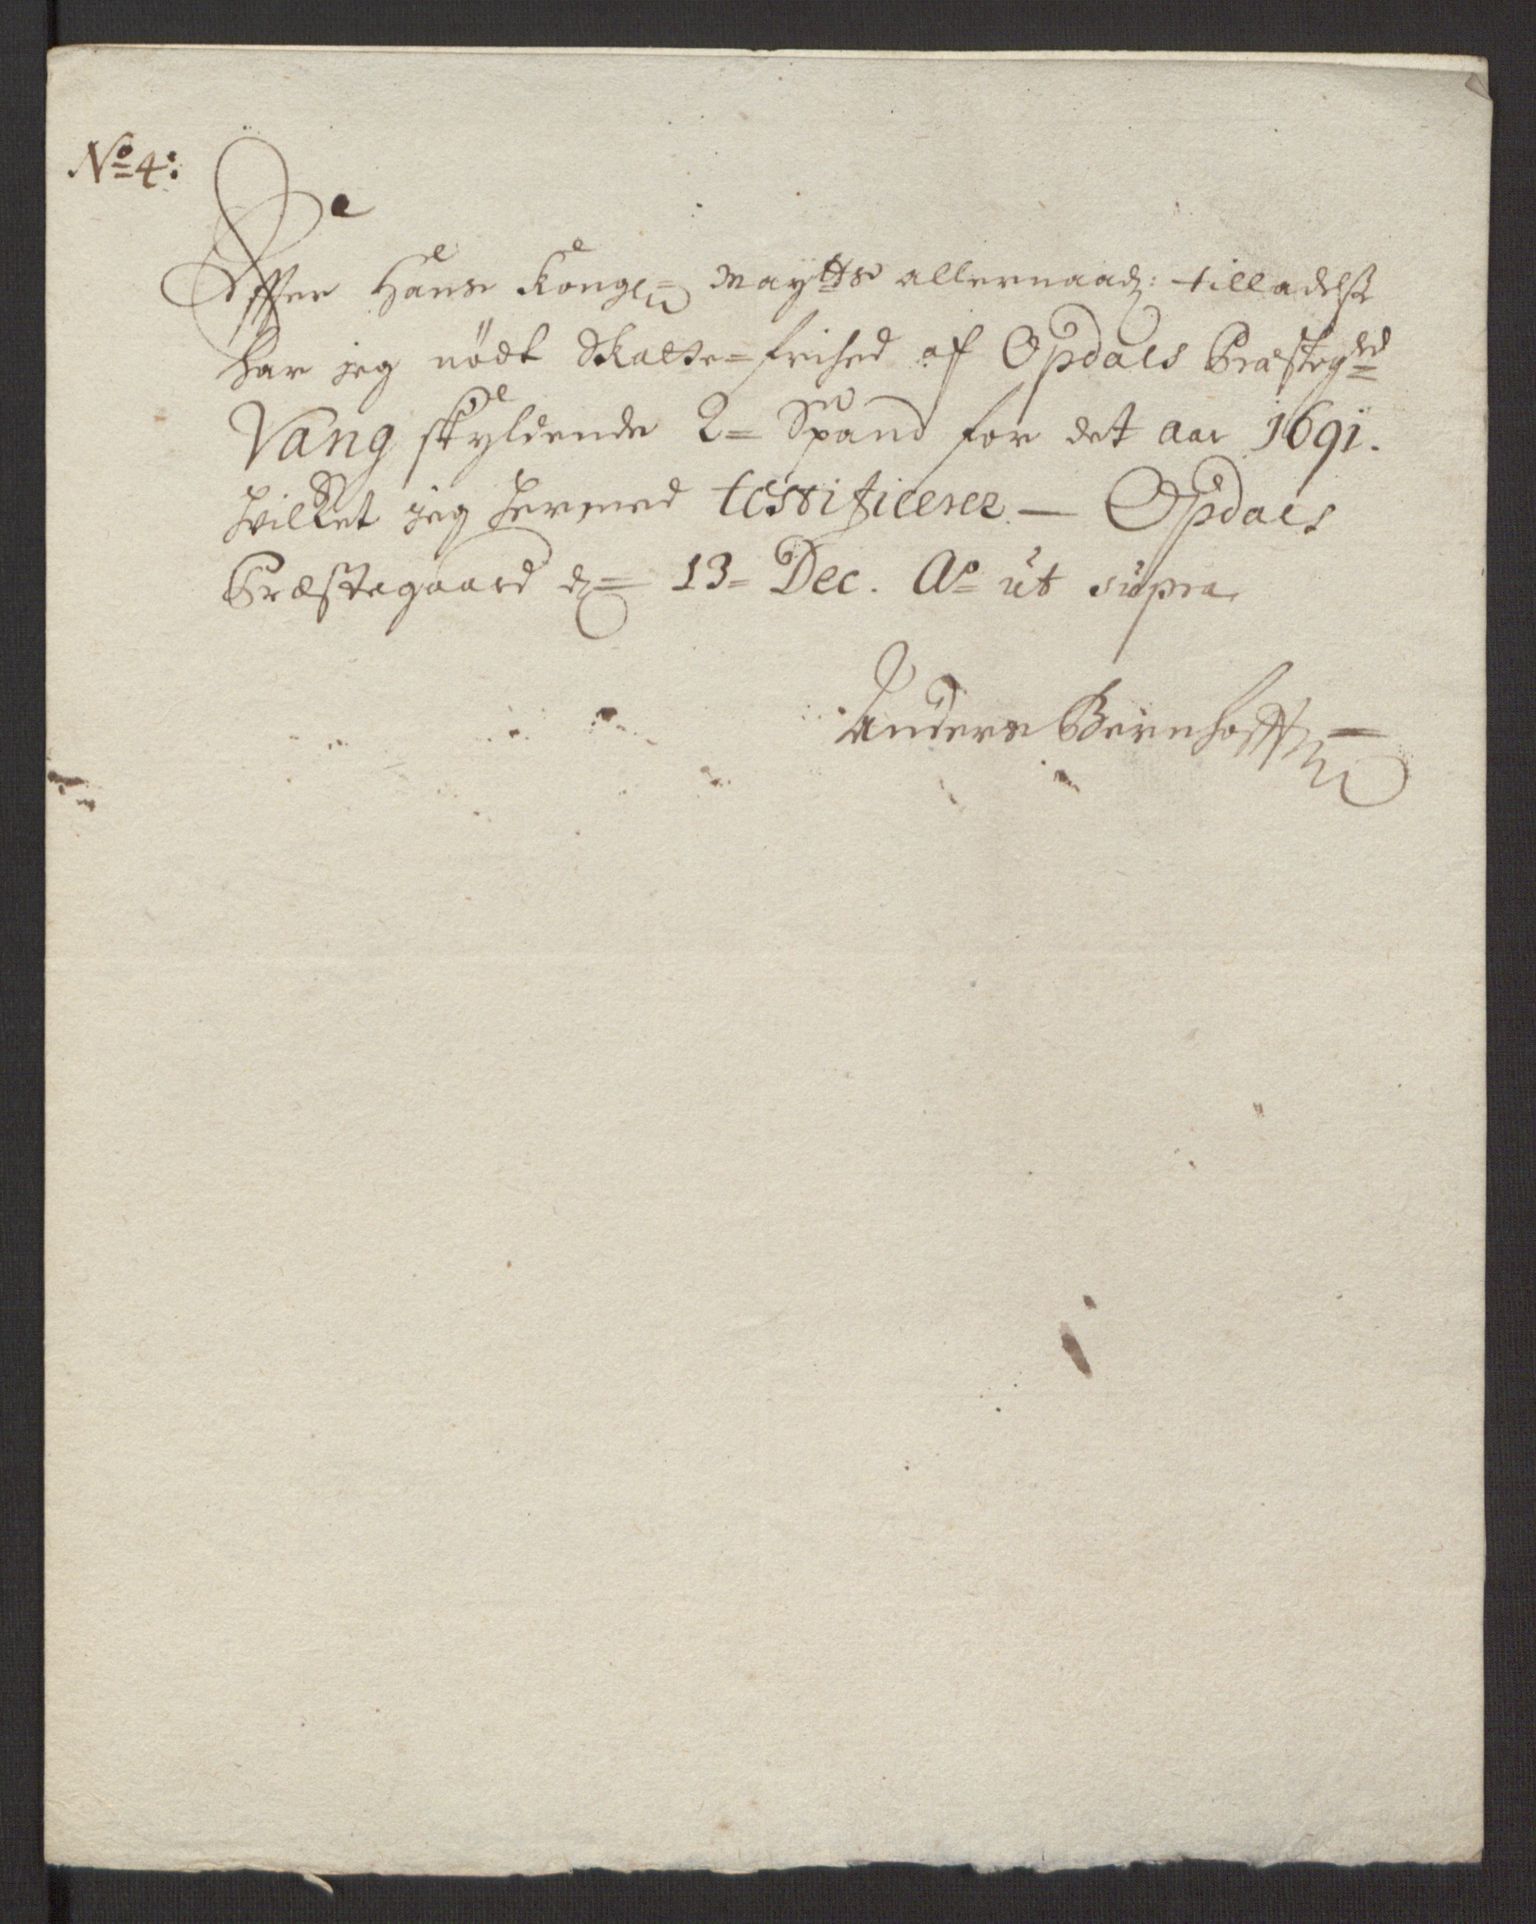 No 4:
Effter Hans Kongl: Maytts allernaad: tilladelse
har jeg nödt Skatte=frihed af Opdals Præstegrd
Vang skyldende 2= Spand for det aar 1691.
hvilket jeg hermed testificerer — Opdals
Præstegaard d= 13= Dec. Ao ut supra
Anders Bernhofft